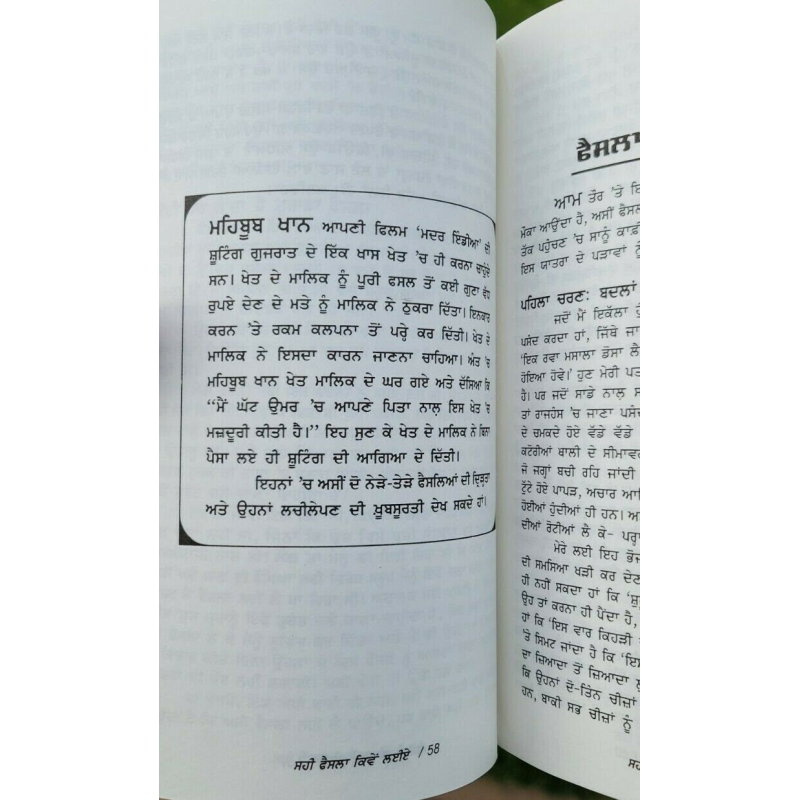 ਮਹਿਬੂਬ ਖਾਨ ਆਪਣੀ ਫਿਲਮ ‘ਮਦਰ ਇੰਡੀਆ’ ਦੀ
ਸ਼ੂਟਿੰਗ ਗੁਜਰਾਤ ਦੇ ਇੱਕ ਖਾਸ ਖੇਤ 'ਚ ਹੀ ਕਰਨਾ ਚਾਹੁੰਦੇ
ਸਨ। ਖੇਤ ਦੇ ਮਾਲਿਕ ਨੂੰ ਪੂਰੀ ਫਸਲ ਤੋਂ ਕਈ ਗੁਣਾ ਵੱਧ
ਰੁਪਏ ਦੇਣ ਦੇ ਮਤੇ ਨੂੰ ਮਾਲਿਕ ਨੇ ਠੁਕਰਾ ਦਿੱਤਾ। ਇਨਕਾਰ
ਕਰਨ 'ਤੇ ਰਕਮ ਕਲਪਨਾ ਤੋਂ ਪਰ੍ਹੇ ਕਰ ਦਿੱਤੀ। ਖੇਤ ਦੇ
ਮਾਲਿਕ ਨੇ ਇਸਦਾ ਕਾਰਨ ਜਾਣਨਾ ਚਾਹਿਆ। ਅੰਤ 'ਚ
ਮਹਿਬੂਬ ਖਾਨ ਖੇਤ ਮਾਲਿਕ ਦੇ ਘਰ ਗਏ ਅਤੇ ਦੱਸਿਆ ਕਿ
“ਮੈਂ ਘੱਟ ਉਮਰ 'ਚ ਆਪਣੇ ਪਿਤਾ ਨਾਲ਼ ਇਸ ਖੇਤ 'ਚ
ਮਜ਼ਦੂਰੀ ਕੀਤੀ ਹੈ।” ਇਹ ਸੁਣ ਕੇ ਖੇਤ ਦੇ ਮਾਲਿਕ ਨੇ ਬਿਨਾ
ਪੈਸਾ ਲਏ ਹੀ ਸ਼ੂਟਿੰਗ ਦੀ ਆਗਿਆ ਦੇ ਦਿੱਤੀ।
ਇਹਨਾਂ 'ਚ ਅਸੀਂ ਦੋ ਨੇੜੇ-ਤੇੜੇ ਫੈਸਲਿਆਂ ਦੀ ਦ੍ਰਿੜਤਾ
ਅਤੇ ਉਹਨਾਂ ਲਚੀਲੇਪਣ ਦੀ ਖ਼ੂਬਸੂਰਤੀ ਦੇਖ ਸਕਦੇ ਹਾਂ।
ਸਹੀ ਫੈਸਲਾ ਕਿਵੇਂ ਲਈਏ / 58
ਫੈਸਲਾ
ਆਮ ਤੌਰ 'ਤੇ ਇ
ਮੌਕਾ ਆਉਂਦਾ ਹੈ, ਅਸੀਂ ਫੈਸਲ
ਤੱਕ ਪਹੁੰਚਣ 'ਚ ਸਾਨੂੰ ਕਾਫ਼ੀ
ਇਸ ਯਾਤਰਾ ਦੇ ਪੜਾਵਾਂ ਨੂੰ
ਪਹਿਲਾ ਚਰਣ: ਬਦਲਾਂ
ਜਦੋਂ ਮੈਂ ਇਕੱਲਾ ਹੁੰ
ਪਸੰਦ ਕਰਦਾ ਹਾਂ, ਜਿੱਥੇ ਜਾ
'ਇਕ ਰਵਾ ਮਸਾਲਾ ਡੋਸਾ ਲੈ
ਹੋਇਆ ਹੋਵੇ।' ਹੁਣ ਮੇਰੀ ਪਤ
ਹੈ। ਪਰ ਜਦੋਂ ਸਾਡੇ ਨਾਲ਼ ਸ
ਤਾਂ ਰਾਜਹੰਸ 'ਚ ਜਾਣਾ ਪਸੰਦ
ਦੇ ਚਮਕਦੇ ਹੋਏ ਵੱਡੇ ਵੱਡੇ
ਕਟੋਰੀਆਂ ਥਾਲੀ ਦੇ ਸੀਮਾਵਰ
ਜੋ ਜਗ੍ਹਾਂ ਬਚੀ ਰਹਿ ਜਾਂਦੀ
ਟੁੱਟੇ ਹੋਏ ਪਾਪੜ, ਅਚਾਰ ਆਦਿ
ਹੋਈਆਂ ਹੁੰਦੀਆਂ ਹੀ ਹਨ। ਅ
ਦੀਆਂ ਰੋਟੀਆਂ ਲੈ ਕੇ- ਪਰ੍ਹਾ
ਮੇਰੇ ਲਈ ਇਹ ਭੋਜ
ਦੀ ਸਮਸਿਆ ਖੜੀ ਕਰ ਦੇਣ
ਹੀ ਨਹੀਂ ਸਕਦਾ ਹਾਂ ਕਿ 'ਸ਼ੁ
ਉਹ ਤਾਂ ਕਰਨਾ ਹੀ ਪੈਂਦਾ ਹੈ,
ਹਾਂ ਕਿ 'ਇਸ ਵਾਰ ਕਿਹੜੀ
'ਤੇ ਸਿਮਟ ਜਾਂਦਾ ਹੈ ਕਿ 'ਇਸ
ਦਾ ਜ਼ਿਆਦਾ ਤੋਂ ਜ਼ਿਆਦਾ ਲੁ
ਕਿ ਉਹਨਾਂ ਦੋ-ਤਿੰਨ ਚੀਜ਼ਾਂ
ਹਨ, ਬਾਕੀ ਸਭ ਚੀਜ਼ਾਂ ਨੂੰ
ਸਹੀ